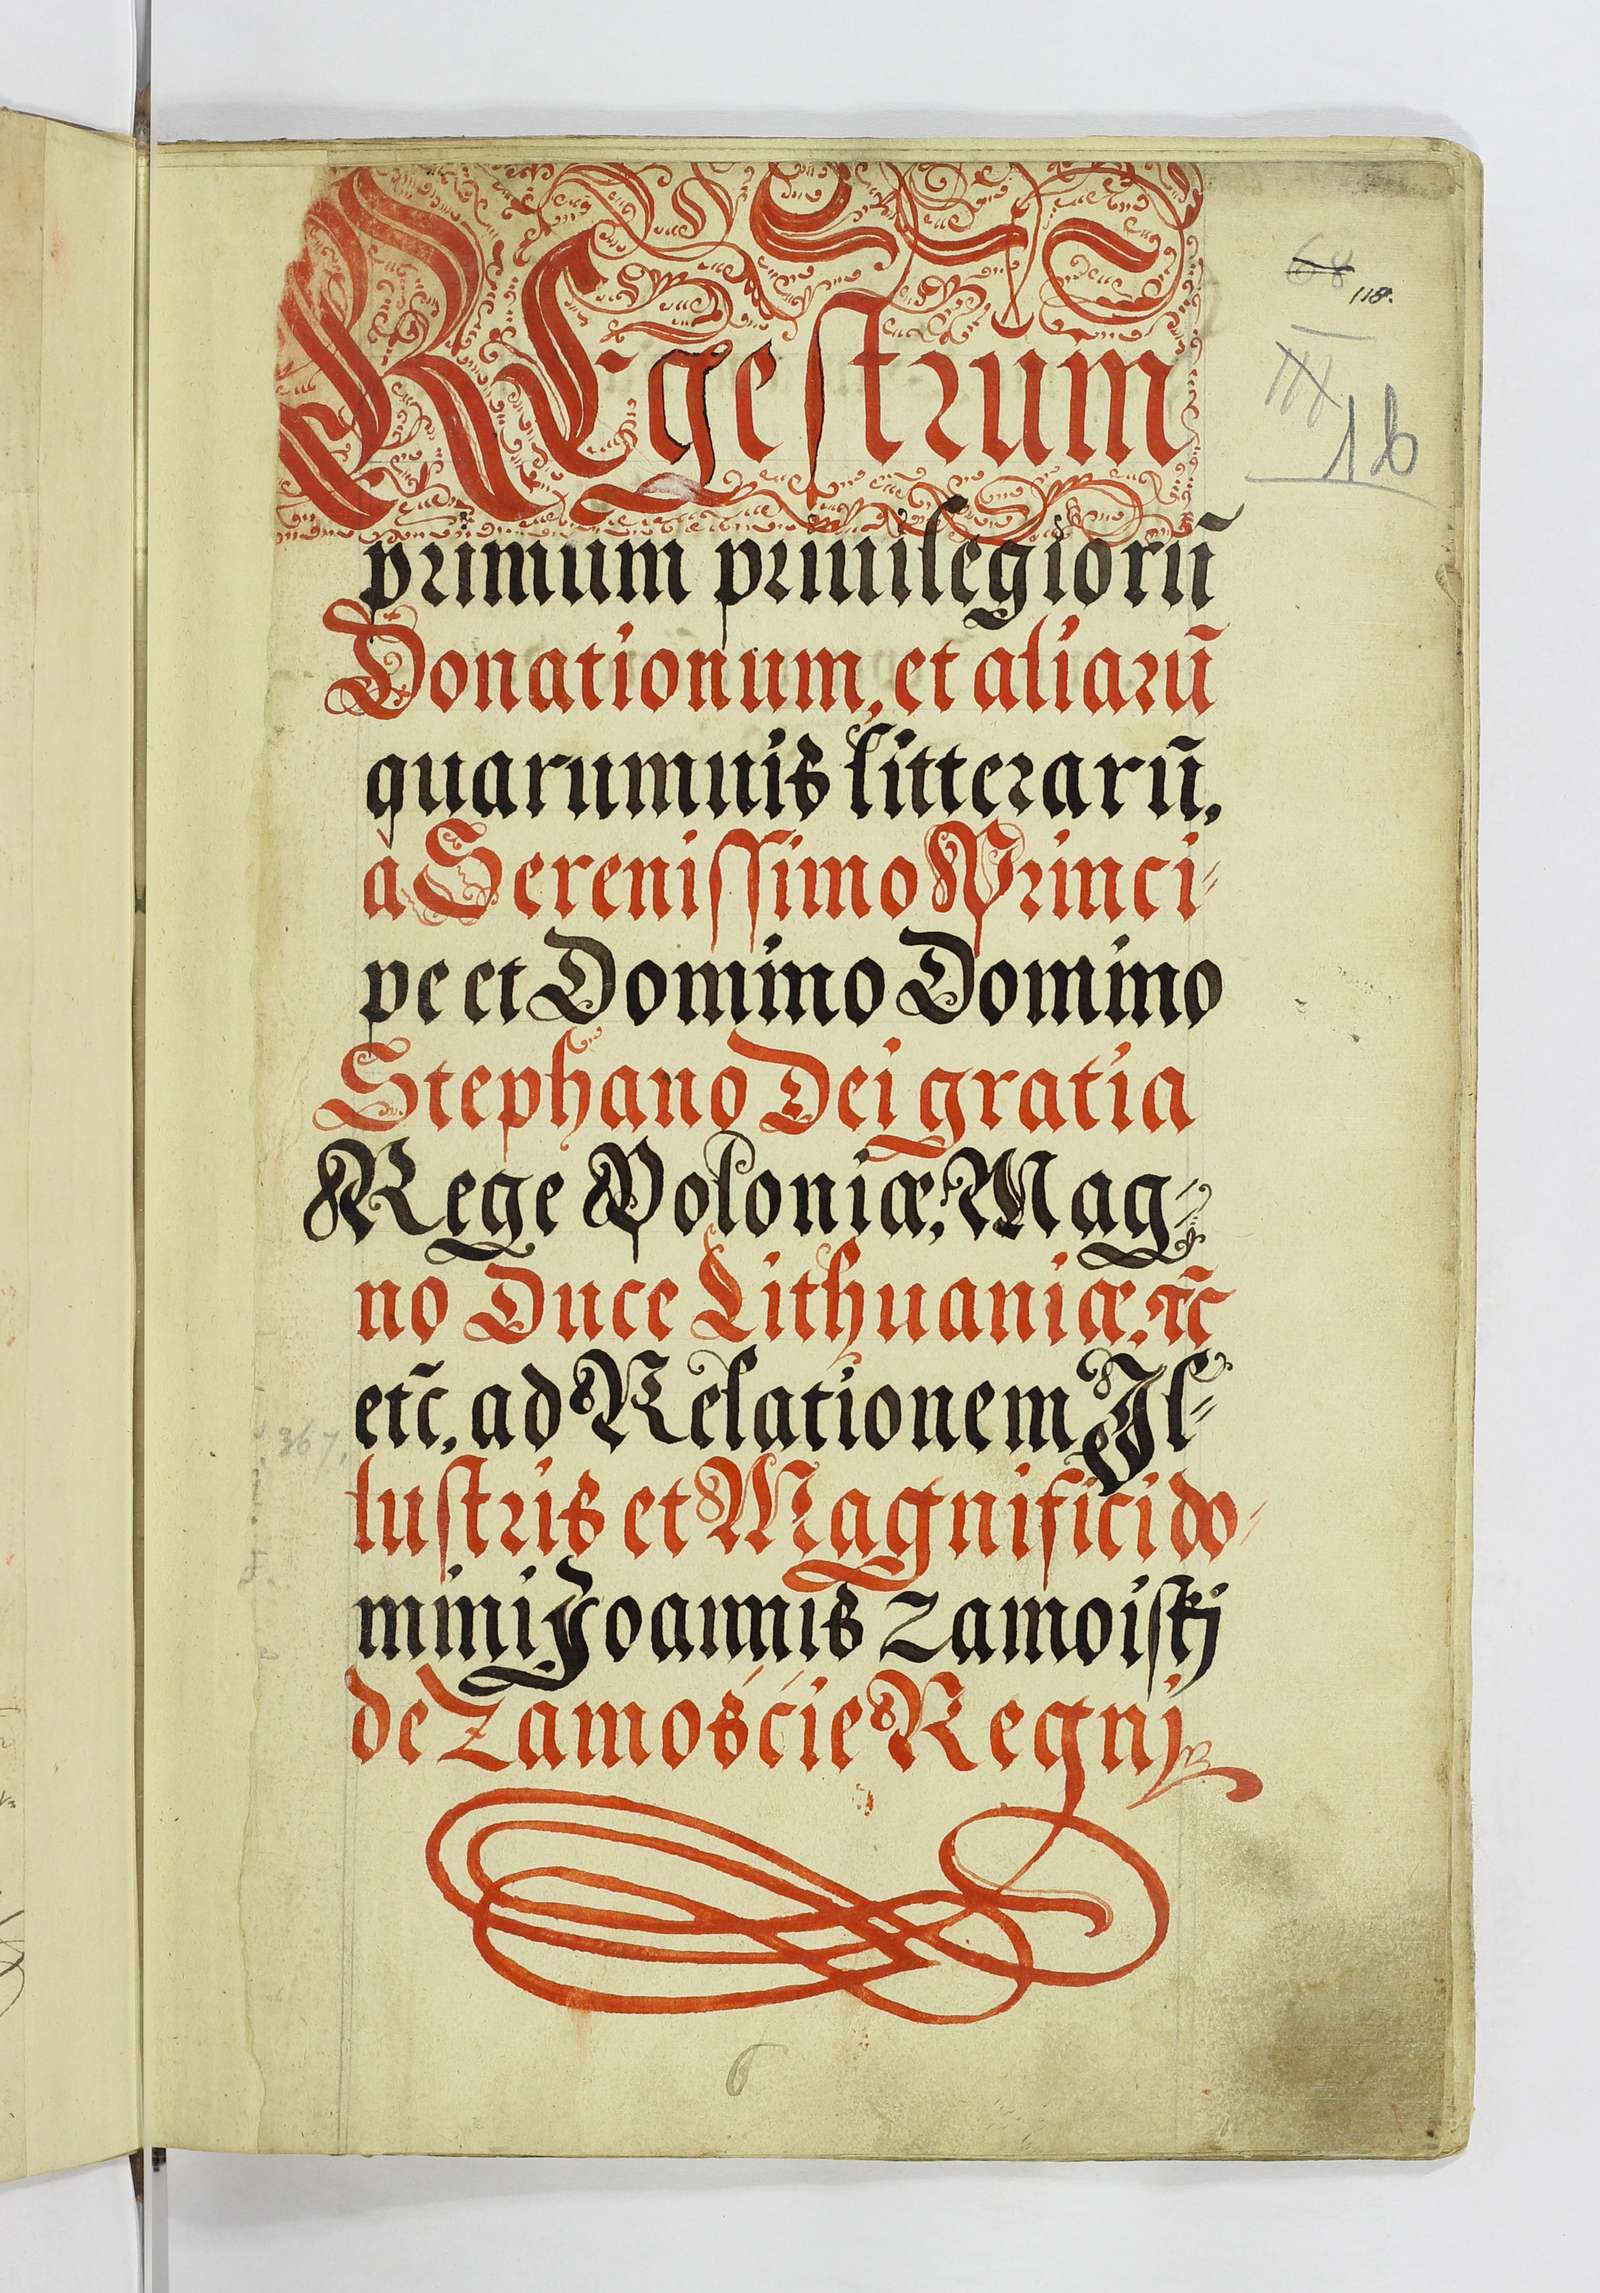 68
118.
16
REgestrum
primum priuilegiorū
Donationum, et aliarū
quarumuis litterarū,
a Serenissimo Princi-
pe et Domino Domino
Stephano Dei gratia
Rege Poloniæ, Mag-
no Duce Lithuaniæ, etc̃
etc̃, ad Relationem Il-
367,
lustris et Magnifici do-
mini Joannis Zamoiskj
de Zamośćie Regnj
6